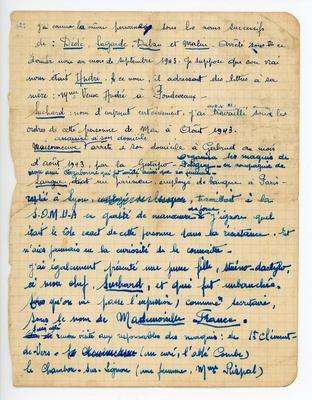 j'ai connu la même personne sous les noms successifs
de : Dédé, Lagarde, Duban et Martin. Arrêté sous ce
dernier nom au mois de septembre 1943. Je suppose que son vrai
nom était André. À ce nom, il adressait des lettres à sa
mère : Mme Veuve André à Bordeaux.
Suchard : nom d'emprunt certainement, j'ai travaillé sous les
ordres de cette personne de Mars à Août 1943.
assassiné à son domicile
Maisonneuve arrêté à son domicile à au mois
d'août 1943, par la Gestapo. organisa les maquis de
Langue, était un parisien, employé de banque à Paris
replié à Lyon, travaillait à la
S.O.M.U.A en qualité de manœuvre. J'ignore quel
était le rôle exact de cette personne dans la résistance. Et
n'ai jamais eu la curiosité de le connaître.
J'ai également présenté une jeune fille, sténo-dactylo,
à mon chef, Suchard, et qui fut embauchée.
qu'on me passe l'expression) comme secrétaire,
sous le nom de Mademoiselle France.
visite aux responsables des maquis : de St Clément-
de-Vers. (un curé, l'abbé Combe)
le Chambon-sur-Lignon (une femme, Mme )